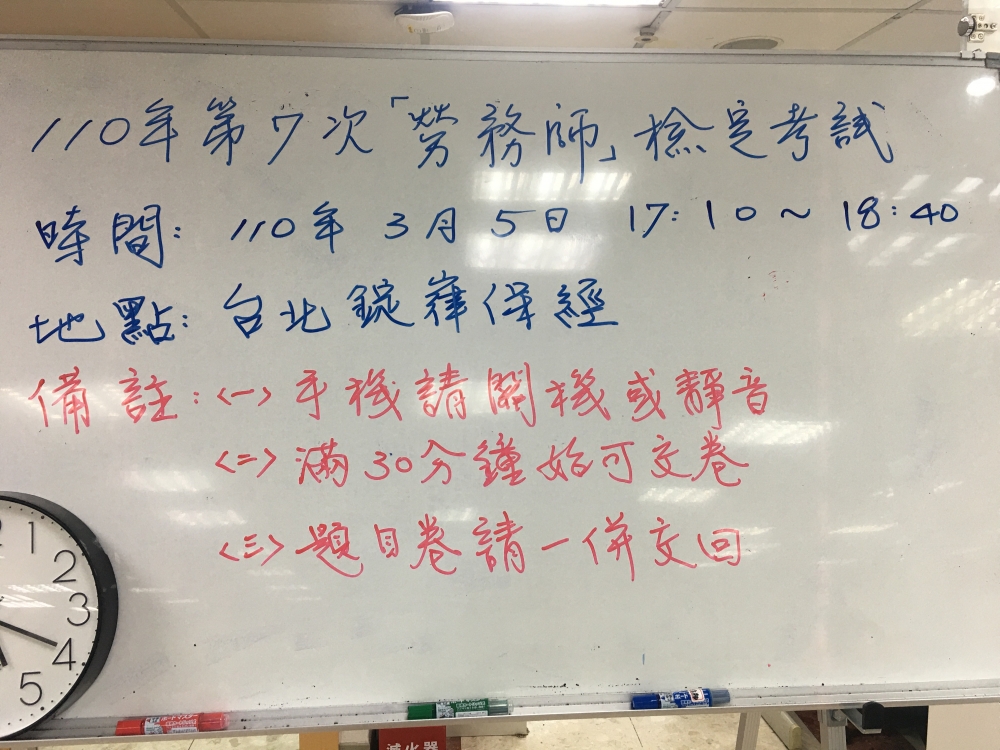 110年第7次「勞務師」檢定考試
時間: 110年 3月 5日 17:10～18:40
地點: 台北錠嵂保經
備註:<一>手機請關機或靜音
<二>滿30分鐘始可交卷
<三>題目卷請一併交回
1
2
3
4
5
滅火器